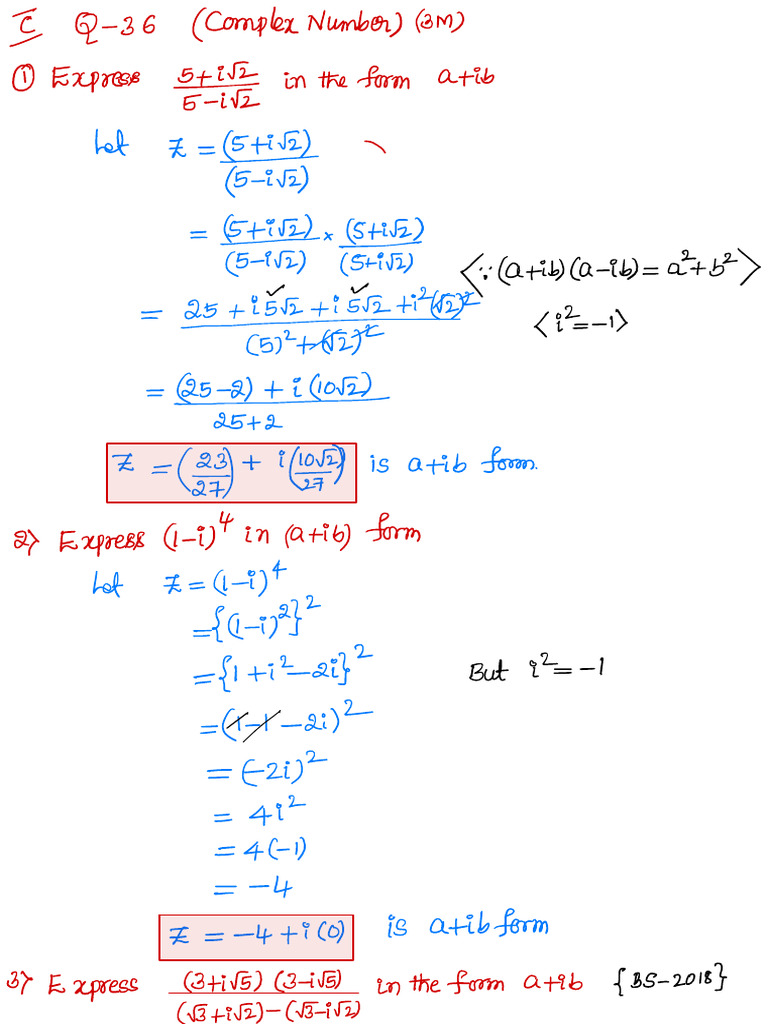 I Q-36 (Complex Number) (3M)
① Express (5+i√2)/(5-i√2) in the form a+ib
Let z = (5+i√2)/(5-i√2)
= (5+i√2)/(5-i√2) × (5+i√2)/(5+i√2)
<∵ (a+ib)(a-ib) = a²+b²>
= (25 + i5√2 + i5√2 + i²(√2)²)/((5)²+(√2)²)
<i²=-1>
= ((25-2) + i(10√2))/(25+2)
z = (23/27) + i(10√2/27) is a+ib form.
2) Express (1-i)⁴ in (a+ib) form
Let z = (1-i)⁴
= {(1-i)²}²
= {1+i²-2i}² But i² = -1
= (1-1-2i)²
= (-2i)²
= 4i²
= 4(-1)
= -4
z = -4+i(0) is a+ib form
3) Express ((3+i√5)(3-i√5))/((√3+i√2)-(√3-i√2)) in the form a+ib {BS-2018}